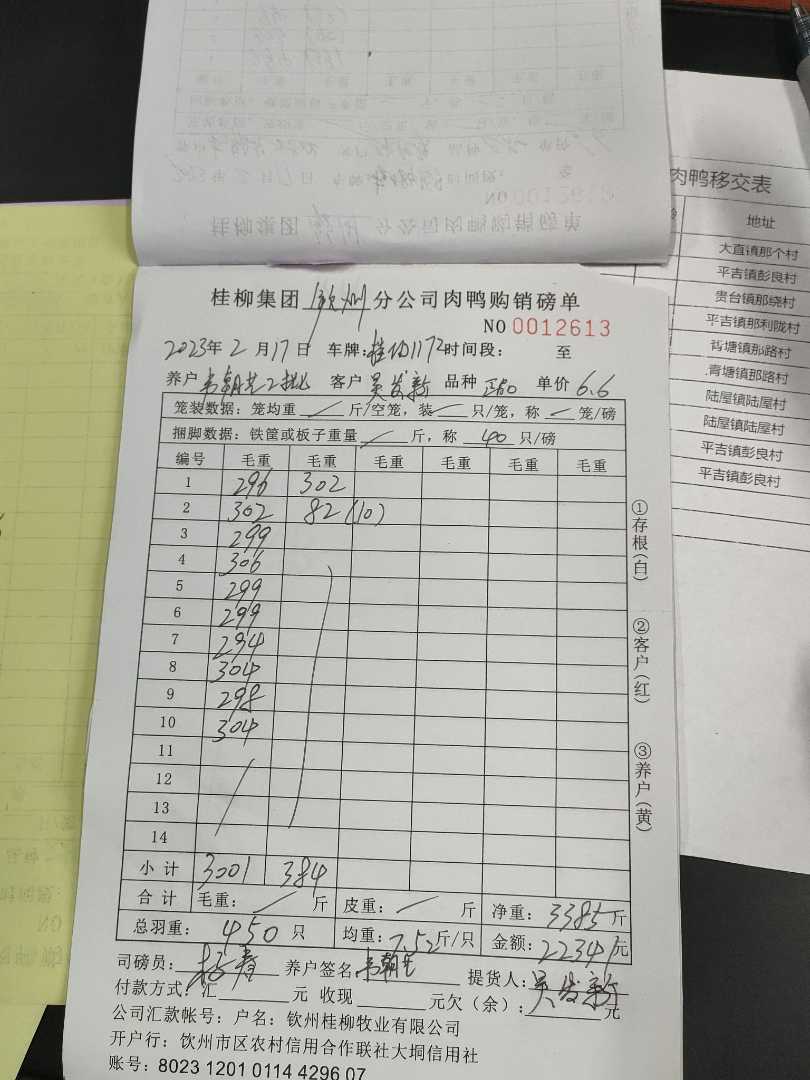 肉鸭移交表
地址
大直镇那个村
平吉镇彭良村
贵台镇那绕村
平吉镇那利陇村
青塘镇那路村
青塘镇那路村
陆屋镇陆屋村
陆屋镇陆屋村
平吉镇彭良村
平吉镇彭良村
桂柳集团 钦州 分公司肉鸭购销磅单
NO 0012613
2023年2月17日 车牌: 时间段: 至
养户 韦朝芝2批 客户 吴发新 品种 单价 6.6
笼装数据:笼均重 / 斤/空笼,装 / 只/笼,称 / 笼/磅
捆脚数据:铁筐或板子重量 / 斤,称 40 只/磅
编号 毛重 毛重 毛重 毛重 毛重 毛重
1 296 302
2 302 82(10)
3 299
4 306
5 299
6 299
7 294
8 304
9 298
10 304
11
12
13
14
小计 3001 384
合计 毛重: / 斤 皮重: / 斤 净重: 3385 斤
总羽重: 450 只 均重: 7.52 斤/只 金额: 22341 元
司磅员: 养户签名: 韦朝芝 提货人: 吴发新
付款方式:汇 元 收现 元欠(余): 元
公司汇款帐号:户名:钦州桂柳牧业有限公司
开户行:钦州市区农村信用合作联社大垌信用社
账号:8023 1201 0114 4296 07
①存根(白)
②客户(红)
③养户(黄)